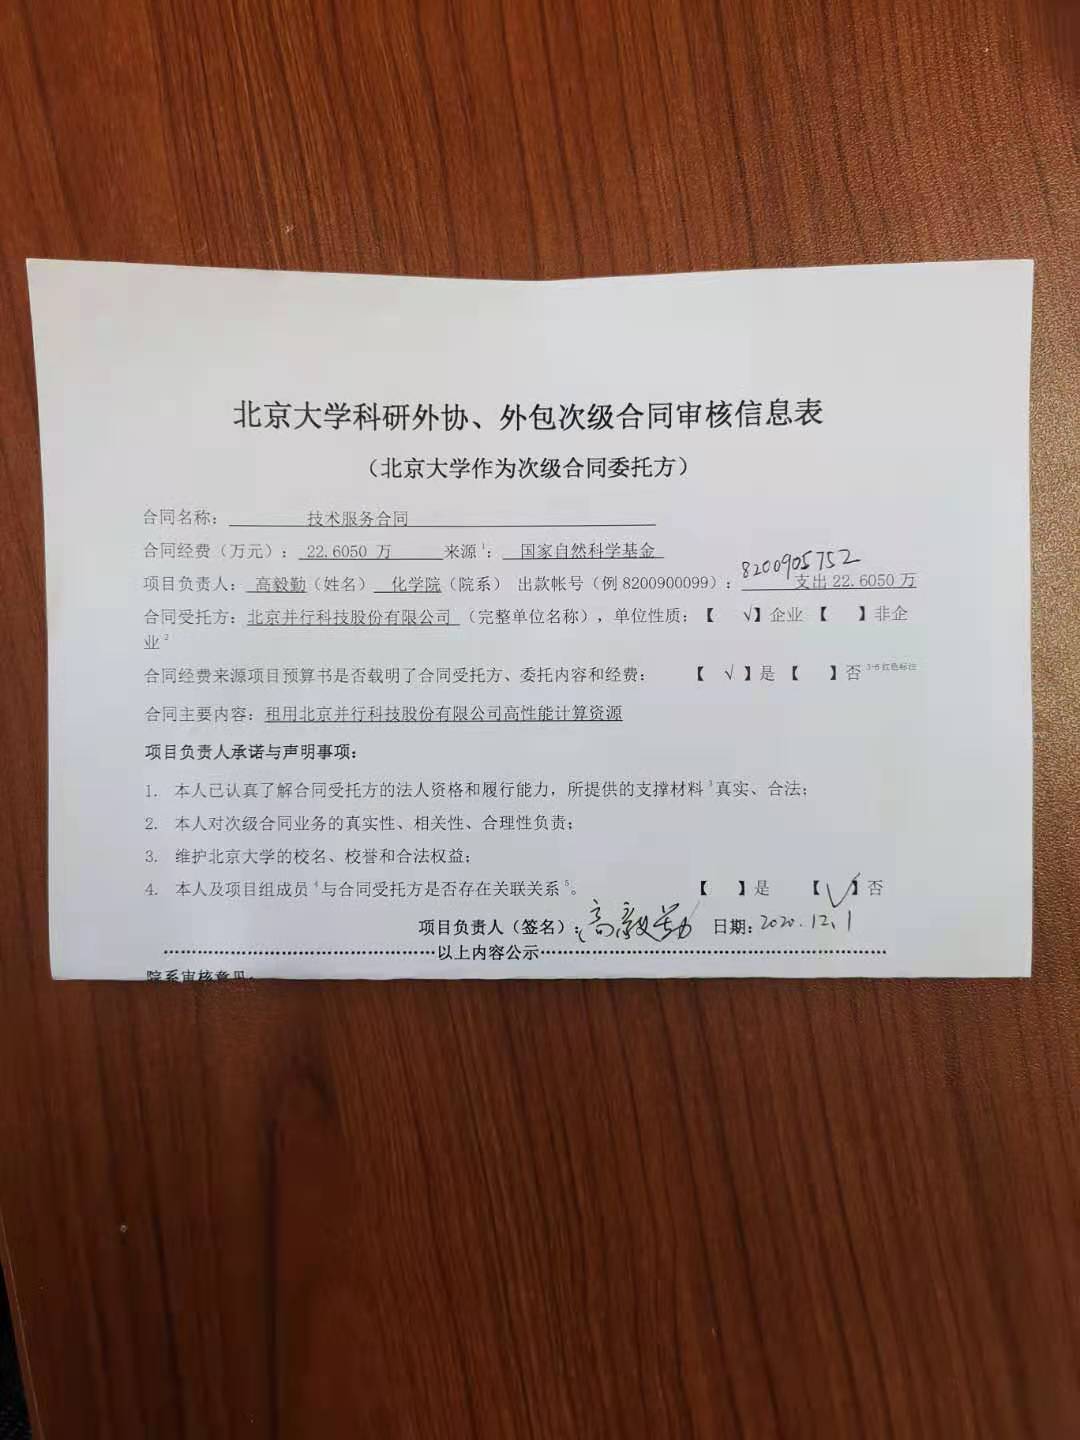 北京大学科研外协、外包次级合同审核信息表
（北京大学作为次级合同委托方）
合同名称： 技术服务合同
合同经费（万元）： 22.6050 万 来源1： 国家自然科学基金
8200905752
项目负责人： 高毅勤（姓名） 化学院（院系） 出款帐号（例 8200900099）： 支出 22.6050 万
合同受托方：北京并行科技股份有限公司 （完整单位名称），单位性质：【 √】企业 【 】非企
业2
合同经费来源项目预算书是否载明了合同受托方、委托内容和经费： 【 √ 】是 【 】否 3-6 红色标注
合同主要内容：租用北京并行科技股份有限公司高性能计算资源
项目负责人承诺与声明事项：
1. 本人已认真了解合同受托方的法人资格和履行能力，所提供的支撑材料3真实、合法；
2. 本人对次级合同业务的真实性、相关性、合理性负责；
3. 维护北京大学的校名、校誉和合法权益；
4. 本人及项目组成员4与合同受托方是否存在关联关系5。 【 】是 【√】否
项目负责人（签名）：高毅勤 日期：2020.12.1
以上内容公示
院系审核意见：